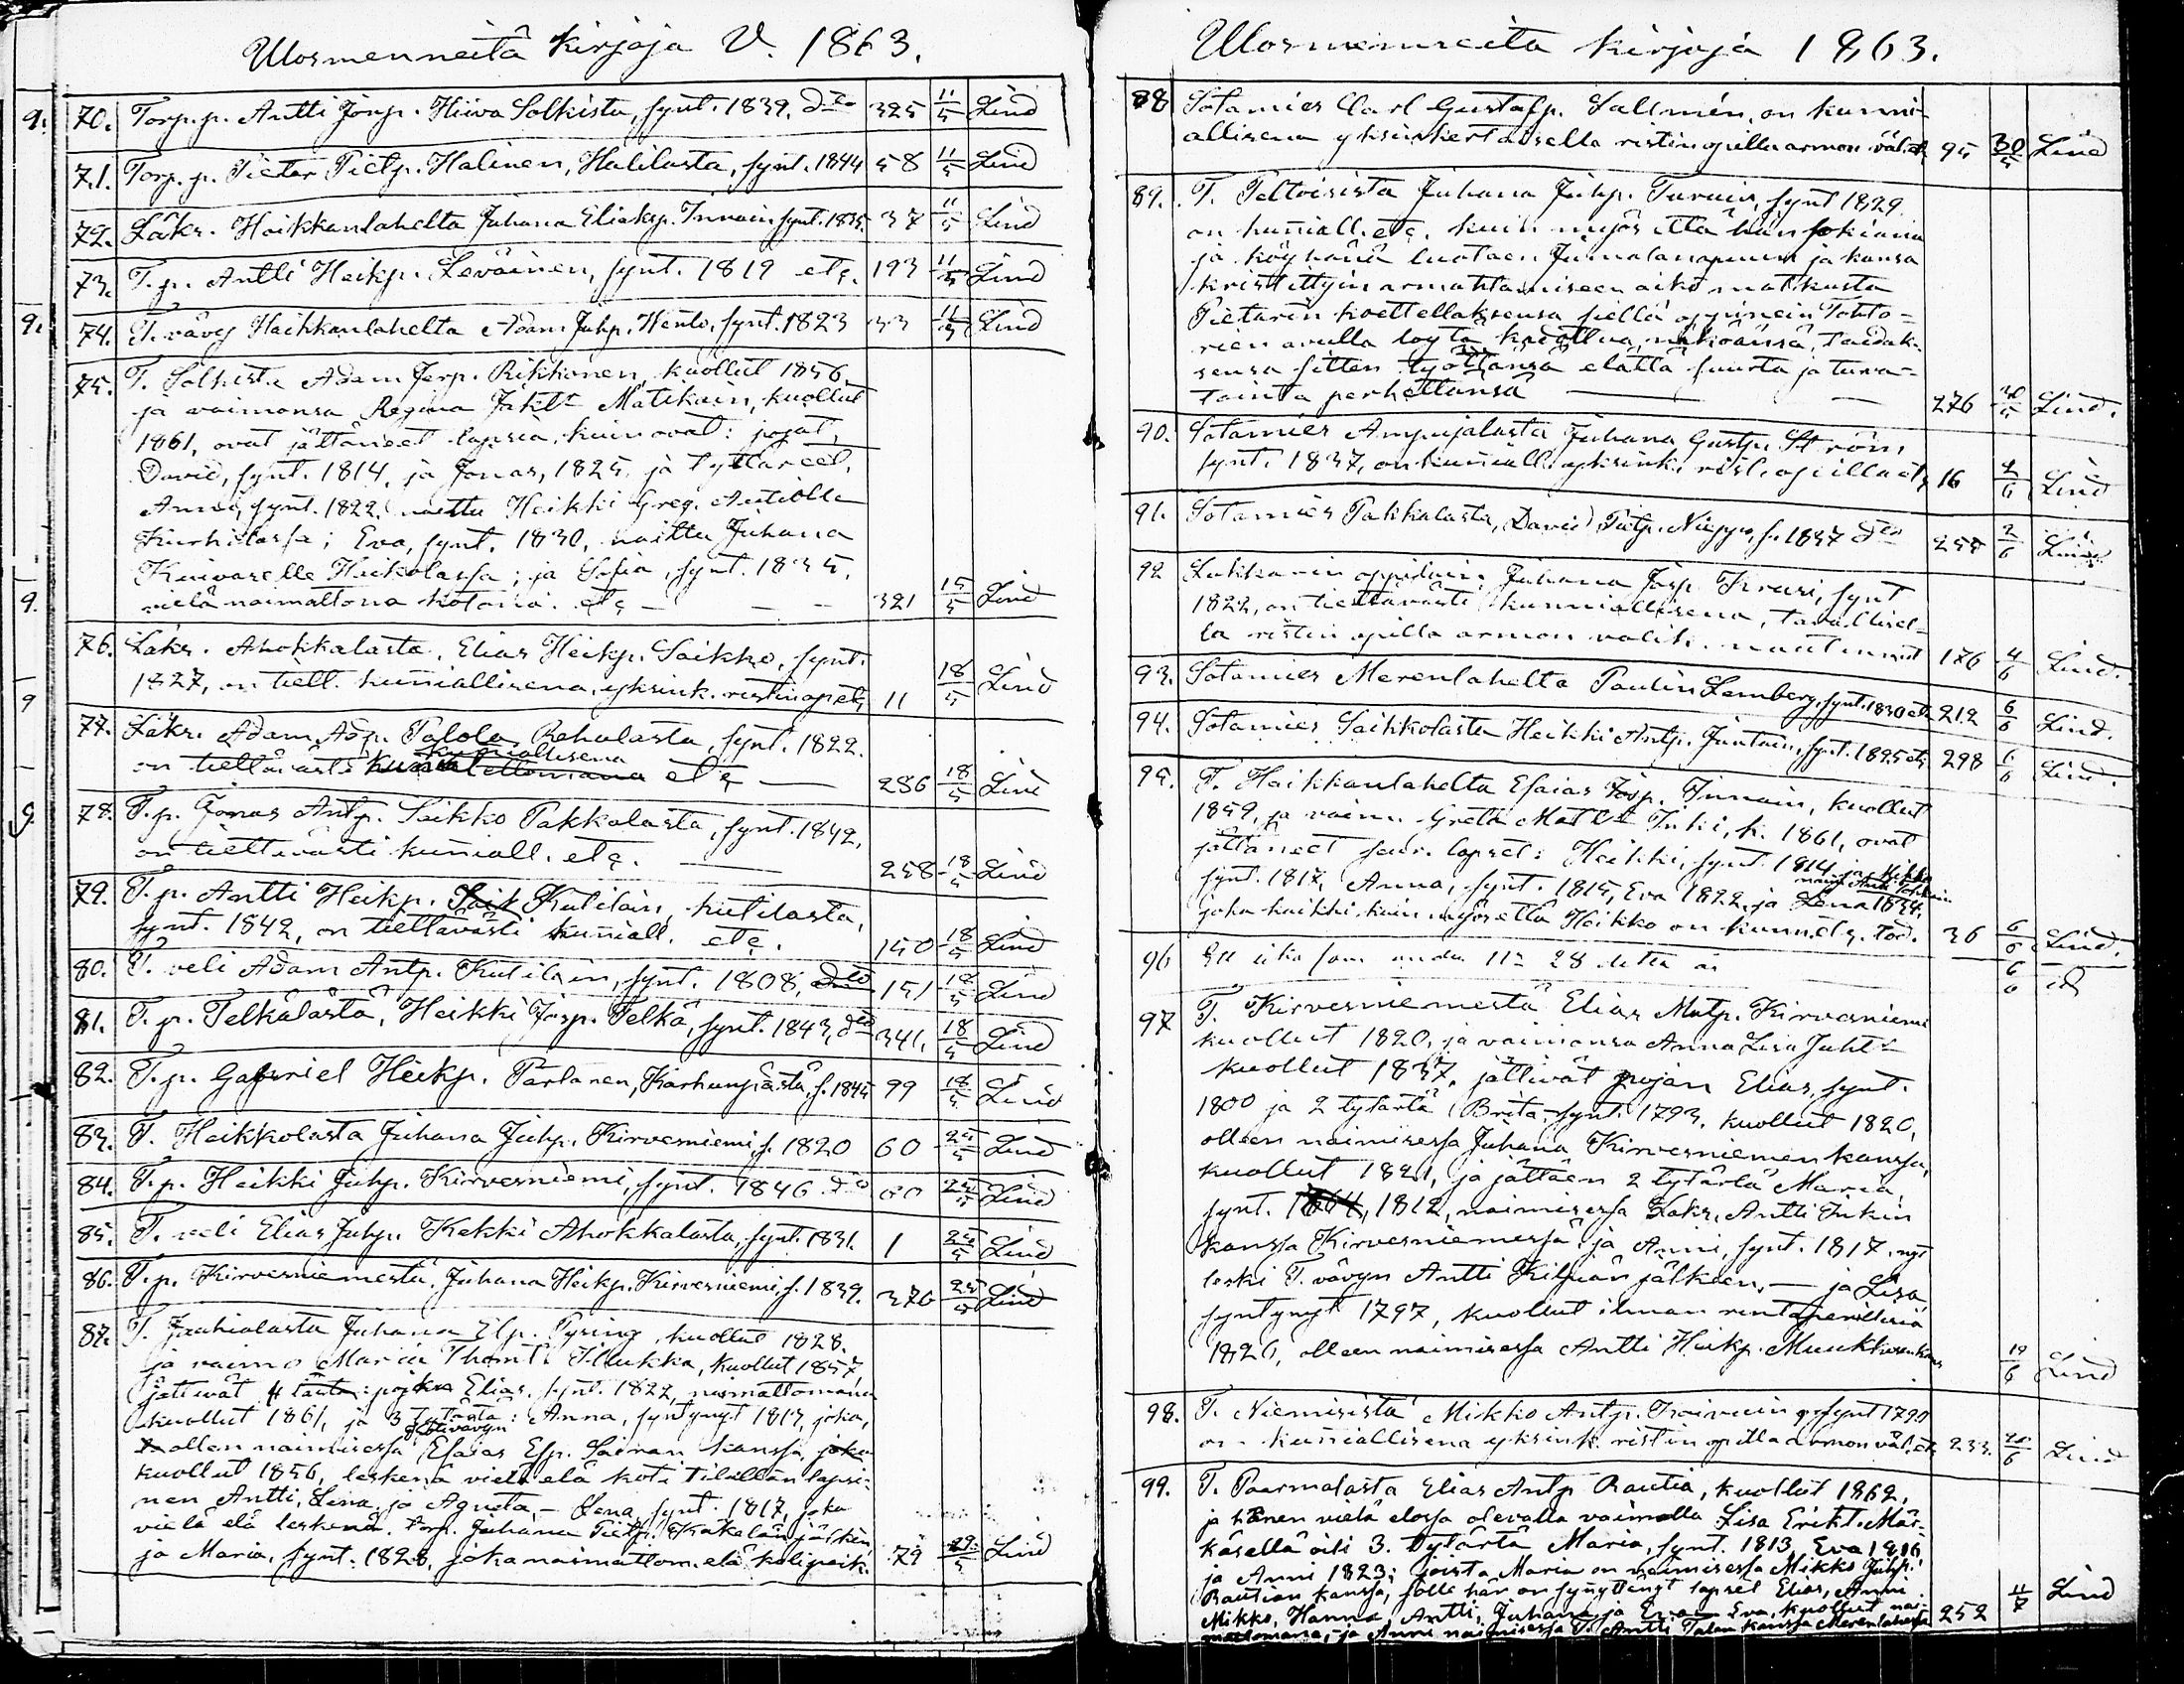 Ulosmenneitä kirjoja V. 1863.
9. 70. Torp.p. Antti Jörp. Hiiva Solkista, synt. 1839, dto 325 11/5 Lind
71. Torp.p. Pietar Pietp. Halinen, Halilasta, synt. 1844 58 11/5 Lind
72. Läks. Haikkanlahelta Juhana Eliaksp. Innain synt. 1835. 37 11/5 Lind
73. T.p. Antti Heikp. Leväinen, synt. 1819 etc. 193 11/5 Lind
9. 74. T. vävy Haikkanlahelta Adam Juhp. Wento, synt. 1823 33 11/5 Lind
75. T. Solkista Adam Jerp. Rikkonen, kuollut 1856,
ja vaimonsa Regina Jakt. Matikain, kuollut
1861, ovat jättäneet lapsia, kuin ovat: pojat,
David, synt. 1814, ja Jonas, 1825, ja tyttäreet,
Anna, synt. 1822, naittu Heikki Greg. Autiolle
Kurhilassa; Eva, synt. 1830, naittu Juhana
Kuivaselle Heikolassa; ja Sofia, synt. 1835,
9. vielä naimattona kotona. etc — 321 15/5 Lind
76. Läks. Ahokkalasta, Elias Heikp. Saikko, synt.
9 1827, on tiett. kuniallisena, yksink. ristinop etc 11 18/5 Lind
77. Läks. Adam Adp. Palola Rehulasta, synt. 1822.
kuniallisena
on tiettäväisti etc — 286 18/5 Lind
9. 78. T.p. Jonas Antp. Saikko Pakkalasta, synt. 1842,
on tiettäväisti kuniall. etc. — 258 18/5 Lind
79. T.p. Antti Heikp. Kutilain, kutilasta,
synt. 1842, on tiettäväisti kuniall. etc. 150 18/5 Lind
80. T. veli Adam Antp. Kutilain, synt. 1808, dto 151 18/5 Lind
81. T.p. Telkälästä, Heikki Jörp. Telkä, synt. 1843, dto 341. 18/5 Lind
82. T.p. Gabriel Heikp. Partanen, Karhunpäästä, s. 1845 99 18/5 Lind
83. T. Haikkolasta Juhana Juhp. Kirvesniemi, s. 1820 60 25/5 Lind
84. T.p. Heikki Juhp. Kirvesniemi, synt. 1846. dto 60 25/5 Lind
85. T. veli Elias Juhp. Kekki Ahokkalasta, synt. 1831. 1 25/5 Lind
86. T.p. Kirvesniemestä, Juhana Heikp. Kirvesniemi, s. 1839. 376 25/5 Lind
87. T. Juhana Elp. Pysing, kuollut 1828.
ja vaimo Maria Thomt. Hukka, kuollut 1857
jätivät Elias. synt. 1822, naimattomana
kuollut 1861, ja 3 tytärtä: Anna, syntynyt 1817, joka,
kotivävyn
ollen naimisessa Esaias Esp. Sairan kanssa, joka
kuollut 1856, leskenä vielä elä koti tilallan lapsi-
nen Antti, Lena, ja Agneta — Lena, synt. 1817, joka
vielä elä leskenä. torp. Juhana Pietp. Käkelän jälkeen
ja Maria, synt. 1828, joka naimattom. elä kotipaik. 79 29/5 Lind
Ulosmenneitä kirjoja 1863.
88 Sotamies Carl Gustafp. Sallmén, on kunni-
allisena yksinkertaisella ristinopilla armon väl. etc 95 30/5 Lind
89. T. Peltoisista Juhana Juhp. Turuin, synt 1829
on kuniall. etc. kuin myös että hän sokiana
ja köyhänä luotaen Jumalan apuun ja kansa
kristittyin armahtamiseen aiko matkusta
Pietariin koettellaksensa siellä oppinein Tohto-
rien avulla löytä kadottua näköänsä, taidak-
sensa sitten työllänsä elättä suurta ja turva-
tointa perhettänsä — 276 30/5 Lind.
90. Sotamies Ampujalasta Juhana Gustp. Ström
synt. 1837, on kuniall. yksink. rist. opilla etc 16 2/6 Lind
91. Sotamies Pakkalasta, David Pietp. s. 1837 dto 255 2/6 Lind
92 Lukkarin oppilain Juhana Jörp. Kruusi, synt
1822, on tiettäväisti kunniallisena, tavallisel-
la ristin opilla armon välik. nautinnut 176 4/6 Lind.
93. Sotamies Merenlahelta Paulin Lemberg, synt. 1830 etc 212 6/6 Lind.
94. Sotamies Saikkolasta Heikki Antp. Juntain, synt. 1825 etc 298 6/6 Lind.
95. T. Haikkanlahelta Esaias Jörp. Innain, kuollut
1859, ja vaimo Greta Matt. Inki, k. 1861, ovat
jättäneet seur. lapset: Heikki, synt. 1814, ja Mikko
synt. 1817, Anna, synt. 1815, Eva 1822, ja Lena 1834,
joka kaikki kuin myös että Heikko on kunn. etc. tod. 36 6/6 Lind.
96 28 detta år 6/6 id
97 T. Kirvesniemestä Elias Matp. Kirvesniemi
kuollut 1820, ja vaimonsa Anna Lisa Juht.
kuollut 1837, jättivät pojan Elias, synt.
1800 ja 2 tytärtä Brita, synt. 1793, kuollut 1820,
olleen naimisessa Juhana Kirvesniemen kanssa,
kuollut 1821, ja jättäen 2 tytärtä Maria,
synt. 1812, naimisessa Läks. Antti Inkin
kanssa Kirvesniemessä; ja Anni, synt. 1817, nyt
leski T. vävyn Antti Kilpiän jälkeen, — ja Lisa
syntynyt 1797, kuollut ilman rintaperillisiä
1826, olleen naimisessa Antti Heikp. Muukkosen kans 19/6 Lind
98. T. Niemisistä Mikko Antp. Toivain synt 1790
on kuniallisena yksink. ristin opilla armon väl. etc 233. 20/6 Lind
99. T. Paarmalasta Elias Antp Rautia, kuollut 1862,
ja hänen vielä elossa olevalla vaimolla Lisa Erikt. Mäs-
käsellä oili 3. tytärtä Maria, synt. 1813, Eva 1816
ja Anni 1823; joista Maria on naimisessa Mikko Juhp.
Rautian kanssa, jolle hän on synyttänyt lapset Elias, Anni
Mikko, Hanna, Antti, Juhana ja Eva, Eva, kuollut nai-
mattomana, ja Anni naimisessa T. Antti Talan kanssa Merenlahessa 252 11/7 Lind